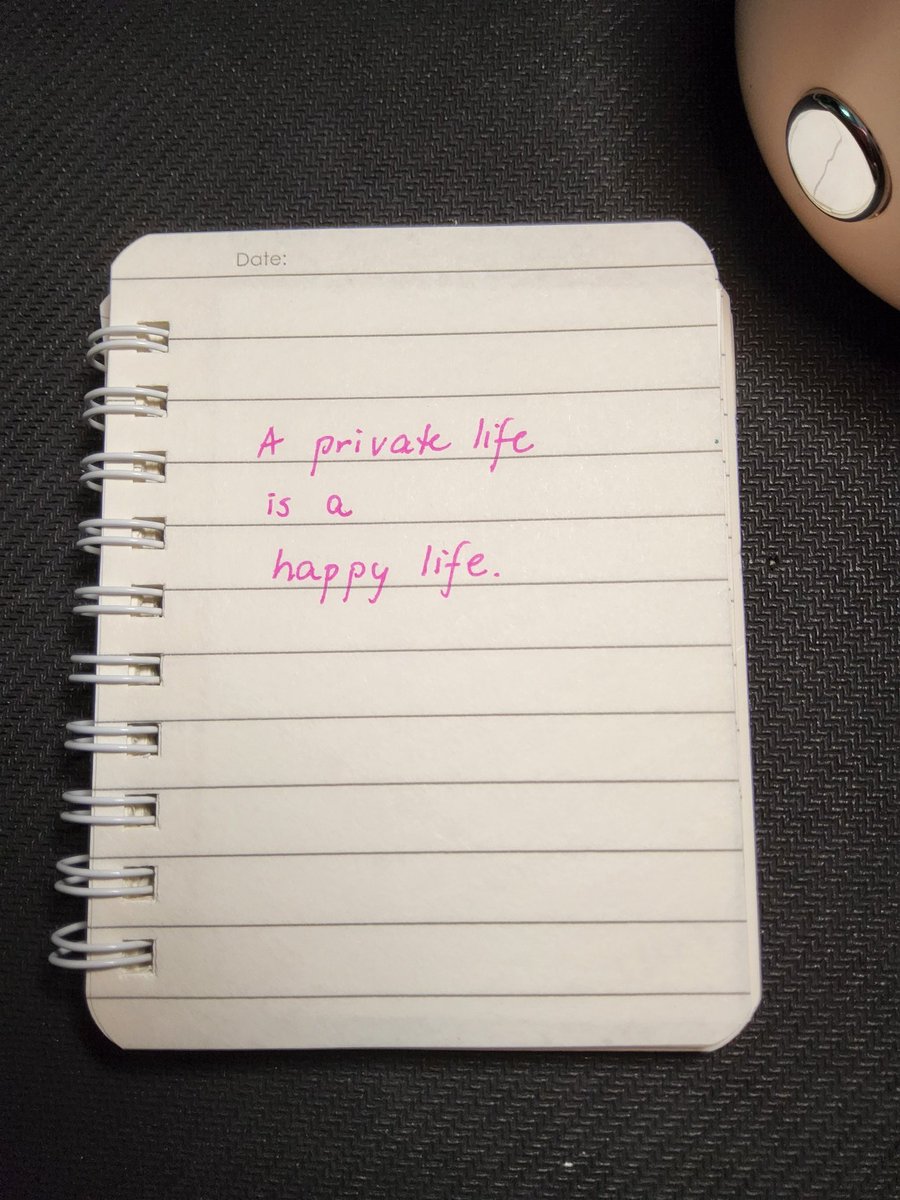 Date:
A private life
is a
happy life.